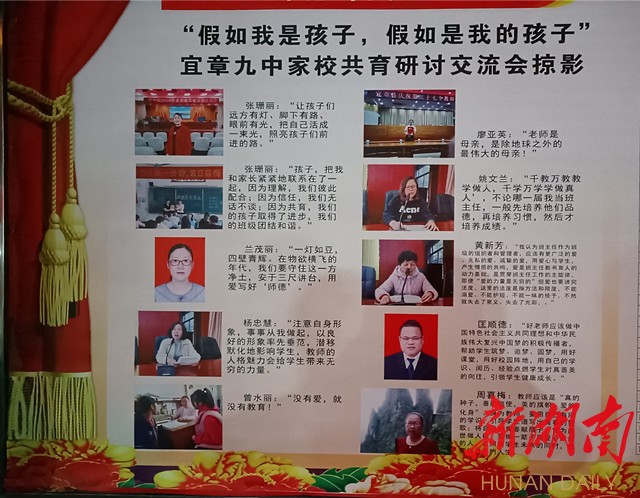 “假如我是孩子，假如是我的孩子”
宜章九中家校共育研讨交流会掠影
张珊丽：“让孩子们
远方有灯、脚下有路、
眼前有光，把自己活成
一束光，照亮孩子们前
进的路。”
张珊丽：“孩子，把我
和家长紧紧地联系在了一
起，因为理解，我们彼此
配合；因为信任，我们无
话不谈；因为共育，我们
的孩子取得了进步，我们
的班级团结和谐。”
兰茂丽：“一灯如豆，
四壁青辉。在物欲横飞的
年代，我们要守住这一方
净土，安于三尺讲台，用
爱写好‘师德’。”
杨忠慧：“注意自身形
象，事事从我做起，以良
好的形象率先垂范，潜移
默化地影响学生，教师的
人格魅力会给学生带来无
穷的力量。”
曾水丽：“没有爱，就
没有教育！”
廖亚英：“老师是
母亲，是除地球之外的
最伟大的母亲！”
姚文兰：“千教万教教
学做人，千学万学学做真
人’，不论哪一届我当班
主任，一般先培养他们品
德，再培养习惯，然后才
培养成绩。”
黄新芳：“我认为班主任作为班
级的组织者和管理者，应该有更广泛的爱
匡顺德：“好老师应该做中
国特色社会主义共同理想和中华民
族伟大复兴中国梦的积极传播者，
帮助学生筑梦、追梦、圆梦，用好
课堂，用好校园阵地，用自己的学
识、阅历、经验点燃学生对真善美
的向往，引领学生健康成长。”
周嘉梅：教师应该是“真的
新湖南
HUNAN DAILY